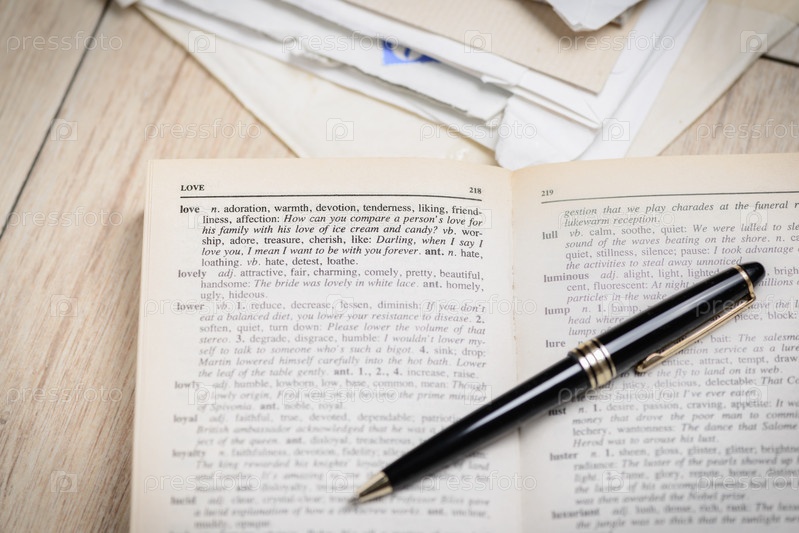 LOVE 218
love n. adoration, warmth, devotion, tenderness, liking, friend-
liness, affection: How can you compare a person's love for
his family with his love of ice cream and candy? vb. wor-
ship, adore, treasure, cherish, like: Darling, when I say I
love you, I mean I want to be with you forever. ant. n. hate,
loathing. vb. hate, detest, loathe.
lovely adj. attractive, fair, charming, comely, pretty, beautiful,
handsome: The bride was lovely in white lace. ant. homely,
ugly, hideous.
lower vb. 1. reduce, decrease, lessen, diminish: If you don't
eat a balanced diet, you lower your resistance to disease. 2.
soften, quiet, turn down: Please lower the volume of that
stereo. 3. degrade, disgrace, humble: I wouldn't lower my-
self to talk to someone who's such a bigot. 4. sink; drop:
Martin lowered himself carefully into the hot bath. Lower
the leaf of the table gently. ant. 1., 2., 4. increase, raise.
lowly adj. humble, lowborn, low, base, common, mean: Though
of lowly origin, Fred went on to become the prime minister
of ant. noble, royal.
loyal adj. faithful, true, devoted, dependable;
British ambassador acknowledged that he was a
ject of the queen. ant. disloyal, treacherous.
loyalty n. faithfulness, devotion, fidelity;
The king rewarded his knights'
lucid adj. clear,
a lucid explanation of how a works. ant.
muddy, opaque.
219
gestion that we play charades at the funeral
lukewarm reception.
lull vb. calm, soothe, quiet: We were lulled to
sound of the waves beating on the shore. n.
quiet, stillness, silence; pause: I took advantage
the activities to steal away unnoticed.
luminous adj. alight, light, lighted,
cent, fluorescent: At night
particles in the wake
lump n. 1. bump, piece, block:
head where
lumps
lure bait: The
service as a
attract, tempt, draw
fly to land on its web.
juicy, delicious, delectable: That
burrito fruit I've ever eaten.
lust n. 1. desire, passion, craving, appetite: It
money that drove the poor man to commit
lechery, wantonness: The dance that Salome
Herod was to arouse his lust.
luster n. 1. sheen, gloss, glister, glitter,
radiance: The luster of the pearls showed up
light. 2. fame, glory, repute, honor,
the luster of his accomplishments
was then awarded the Nobel prize.
luxuriant adj. lush, dense, rich, rank: The
the jungle was so thick that the sunlight
pressfoto